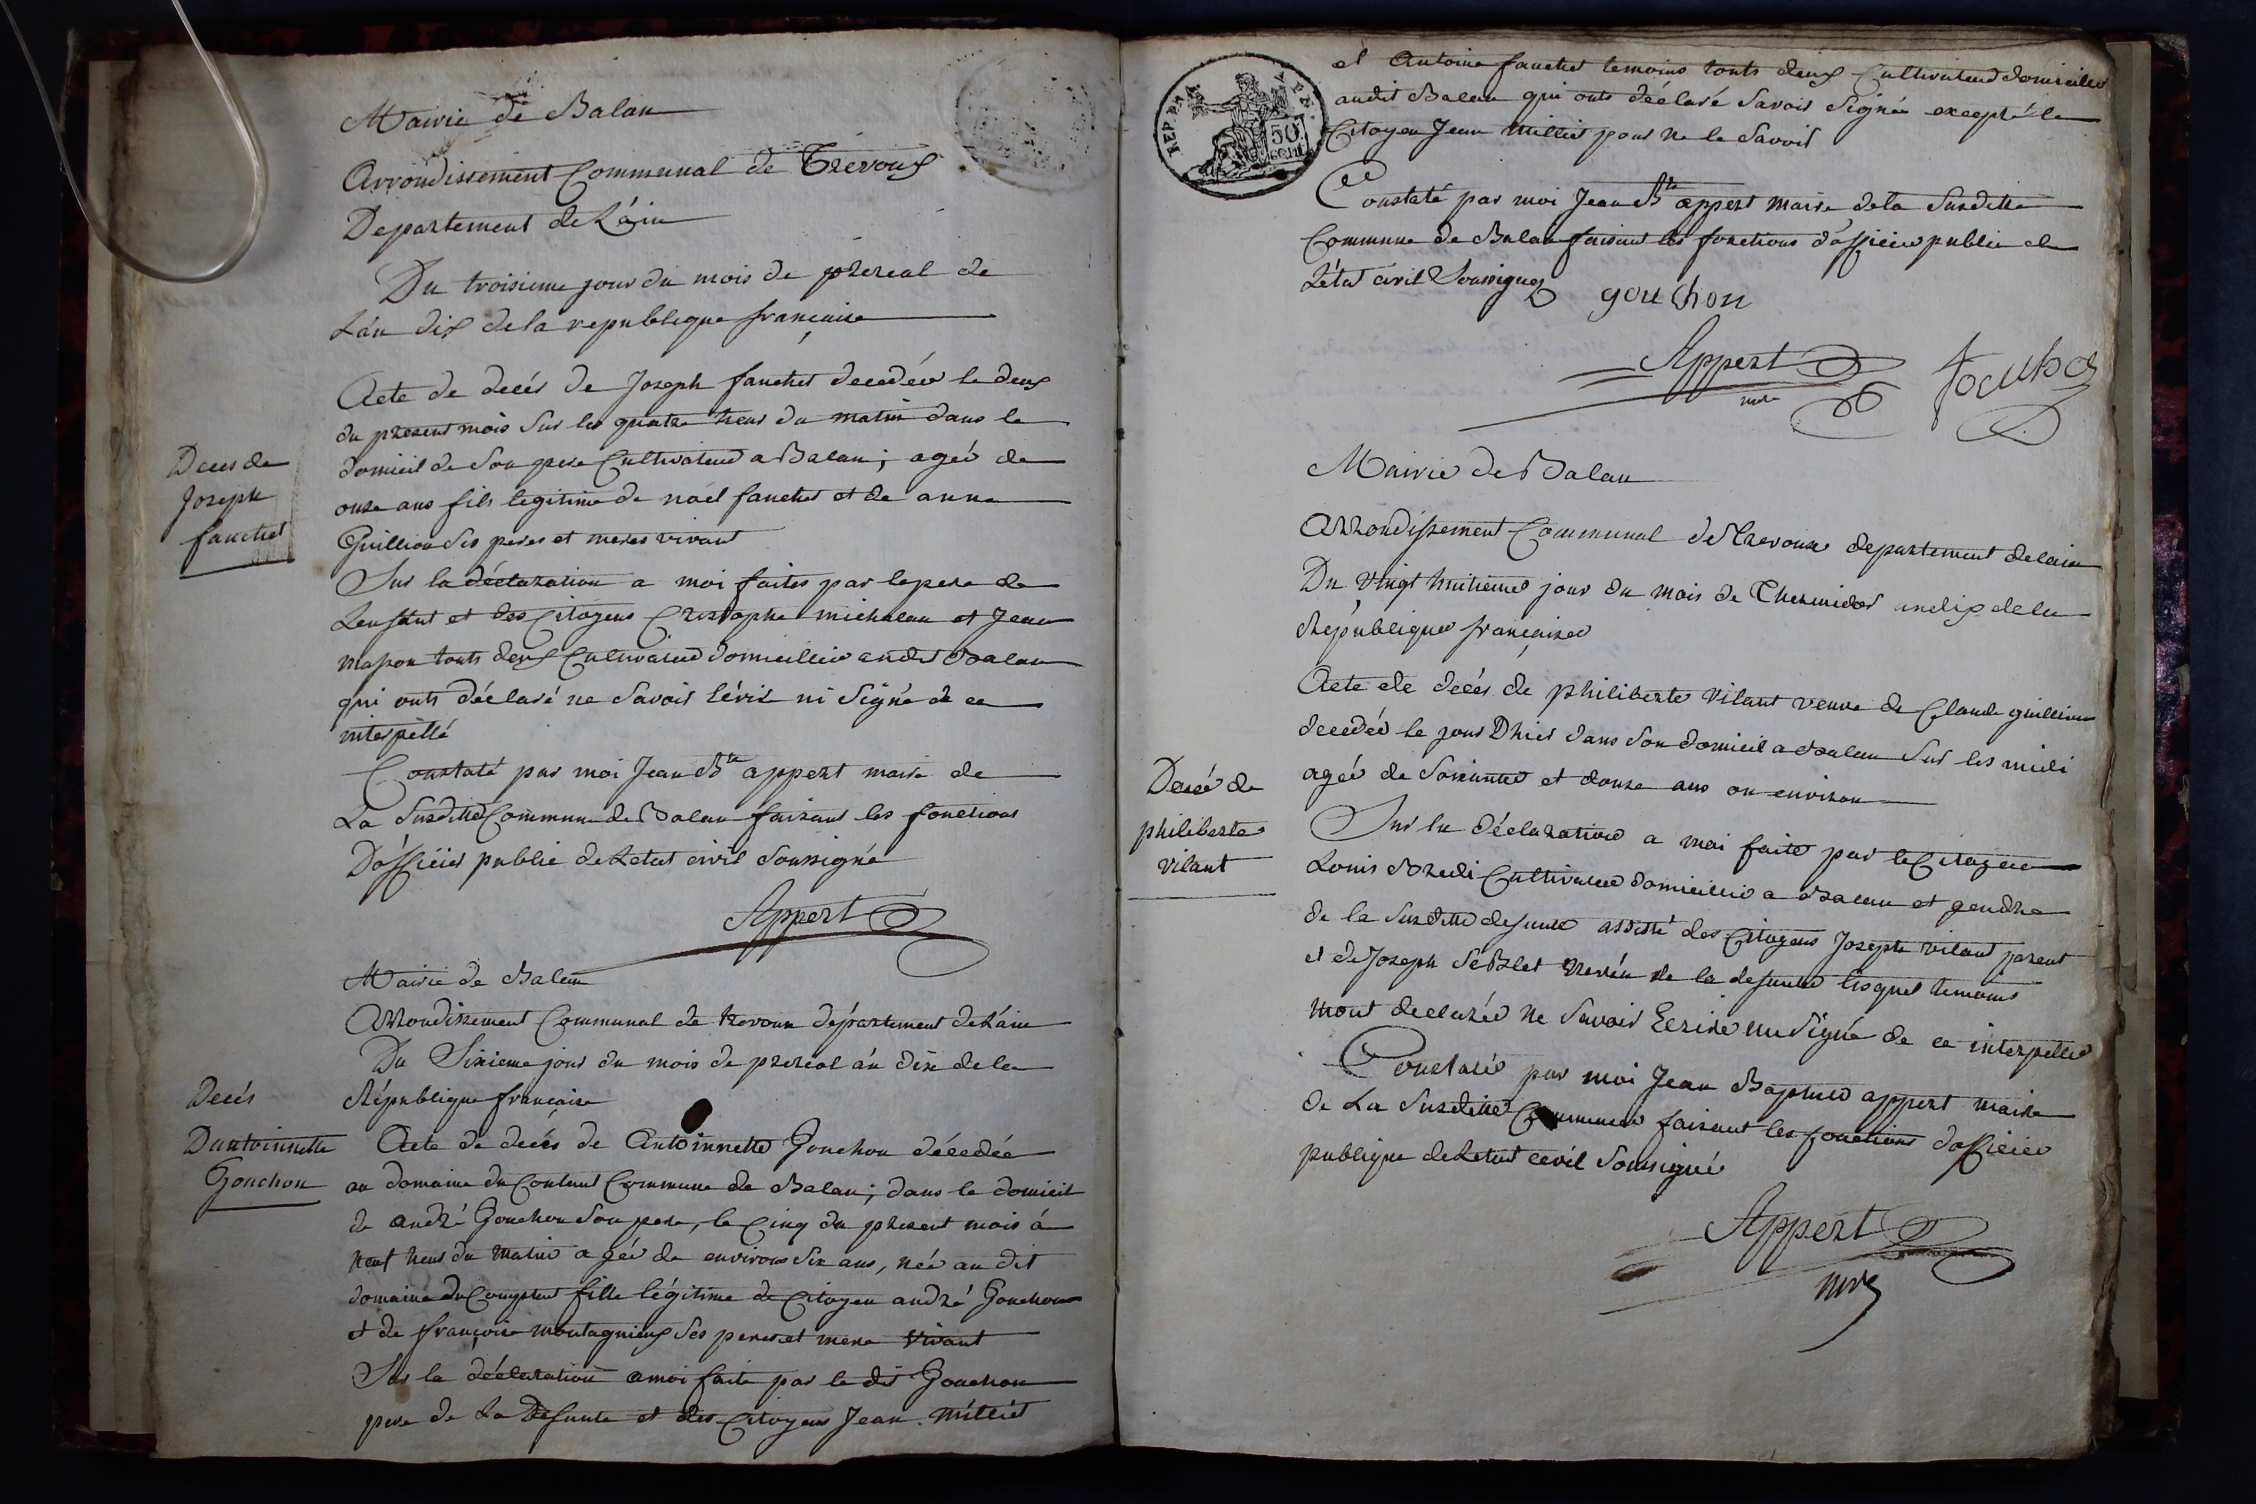 Mairie de Balan
Arrondissement Communal de Trevoux
Departement de L'ain
Du troisieme jour du mois de prereal de
L'án dix de la republique française
Acte de decés de Joseph fauchet decedéé le deux
du present mois Sur les quatre heur du matin dans le
domicil de Son pere Cultivateur a Balan; ageé de
onze ans fils legitime de noél fauchet et de anne
Guillion Ses peres et meres vivant
Sur la déclaration a moi faites par le pere de
Lenfant et des Citoyens Cristophe michalan et Jean
masson touts deux Cultivateur domicillié audit Balan
qui onts déclaré ne Savoir Lérir ni Signé de ce
interpéllé
Constaté par moi Jean Bte appert maire de
La Susditte Commune de Balan faisant les fonctions
Dofficier public de Letat civil Soussigné
Appert
Deces de
Joseph
fauchet
Mairie de Balan
Arrondissement Communal de trevoux département de L'ain
Du Sixieme jour du mois de prereal án dix de la
République française
Acte de decés de Antoinnette Gonchon décedée
au domaine du Content Commune de Balan; dans le domicil
de andré Gonchon Son pere, le Cinq du present mois á
neuf heur du matin agéé de environ dix ans, néé au dit
domaine du Comptent fille légitime de Citoyen andré Gonchon
et de françoise montagnieux Ses peres et mere vivant
Sur la déclaration a moi faite par le dit Gonchon
pere de La Defunte et des Citoyens Jean Milliét
Decés
Dantoinnette
Gonchon
REP
50
cent
et Antoine fauchet temoins touts deux Cultivateur domicillié
audit Balan qui onts déclaré Savoir Signée excepté le
Citoyen Jean Milliet pour ne le Savoir
Constaté par moi Jean Bte appert maire de la Susditte
Commune de Balan faisant les fonctions dofficier public de
Létat civil Soussigné
gouchon
Appert
mre
Mairie de Balan
Arrondissement Communal de Trevoux departement de lain
Du vingt huitieme jour du mois de Thermidor an dix de la
République française
Acte de decés de philiberte vilant veuve de Claude guillion
decedéé le jour Dhier dans Son domicil a Balan Sur les midi
agéé de Soixante et douze ans ou environ
Sur la déclaration a moi faite par le Citoyen
Louis Bredi Cultivateur domicillié a Balan et gendre
de la Susditte defunte assisté des Citoyens Joseph vilant parent
et de Joseph Séblet neveu de la defunte lesquel temoins
mont declarée ne Savoir Ecrire nu Signé de ce interpellé
Constaté par moi Jean Baptiste appert maire
de La Susditte Commune faisant les fonctions dofficier
publique de Letat cevil Soussigné
Appert
mre
Decé de
philiberte
vilant